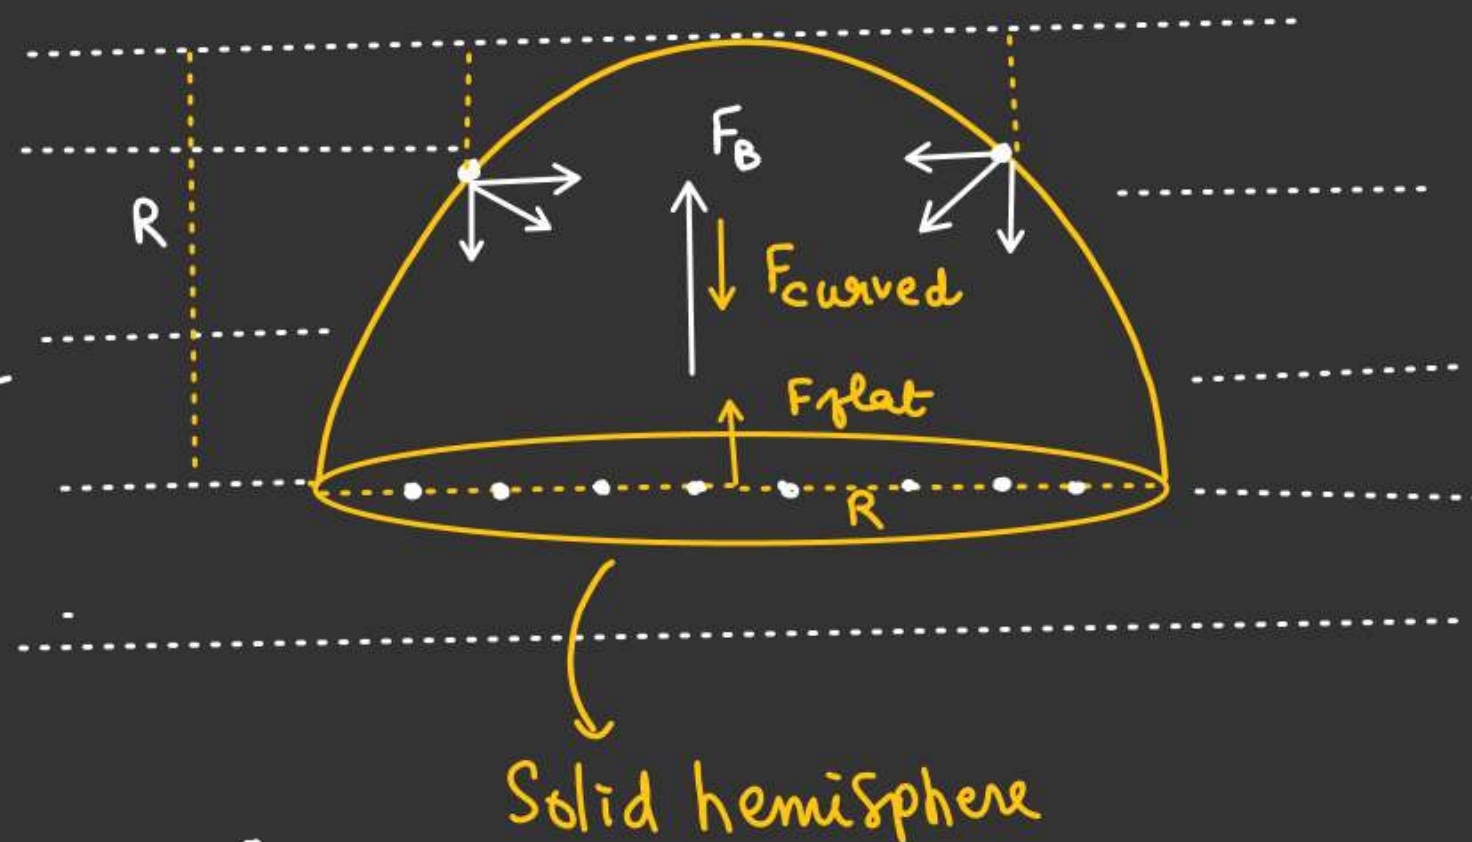 F_B
R
F_curved
F_flat
R
Solid hemisphere